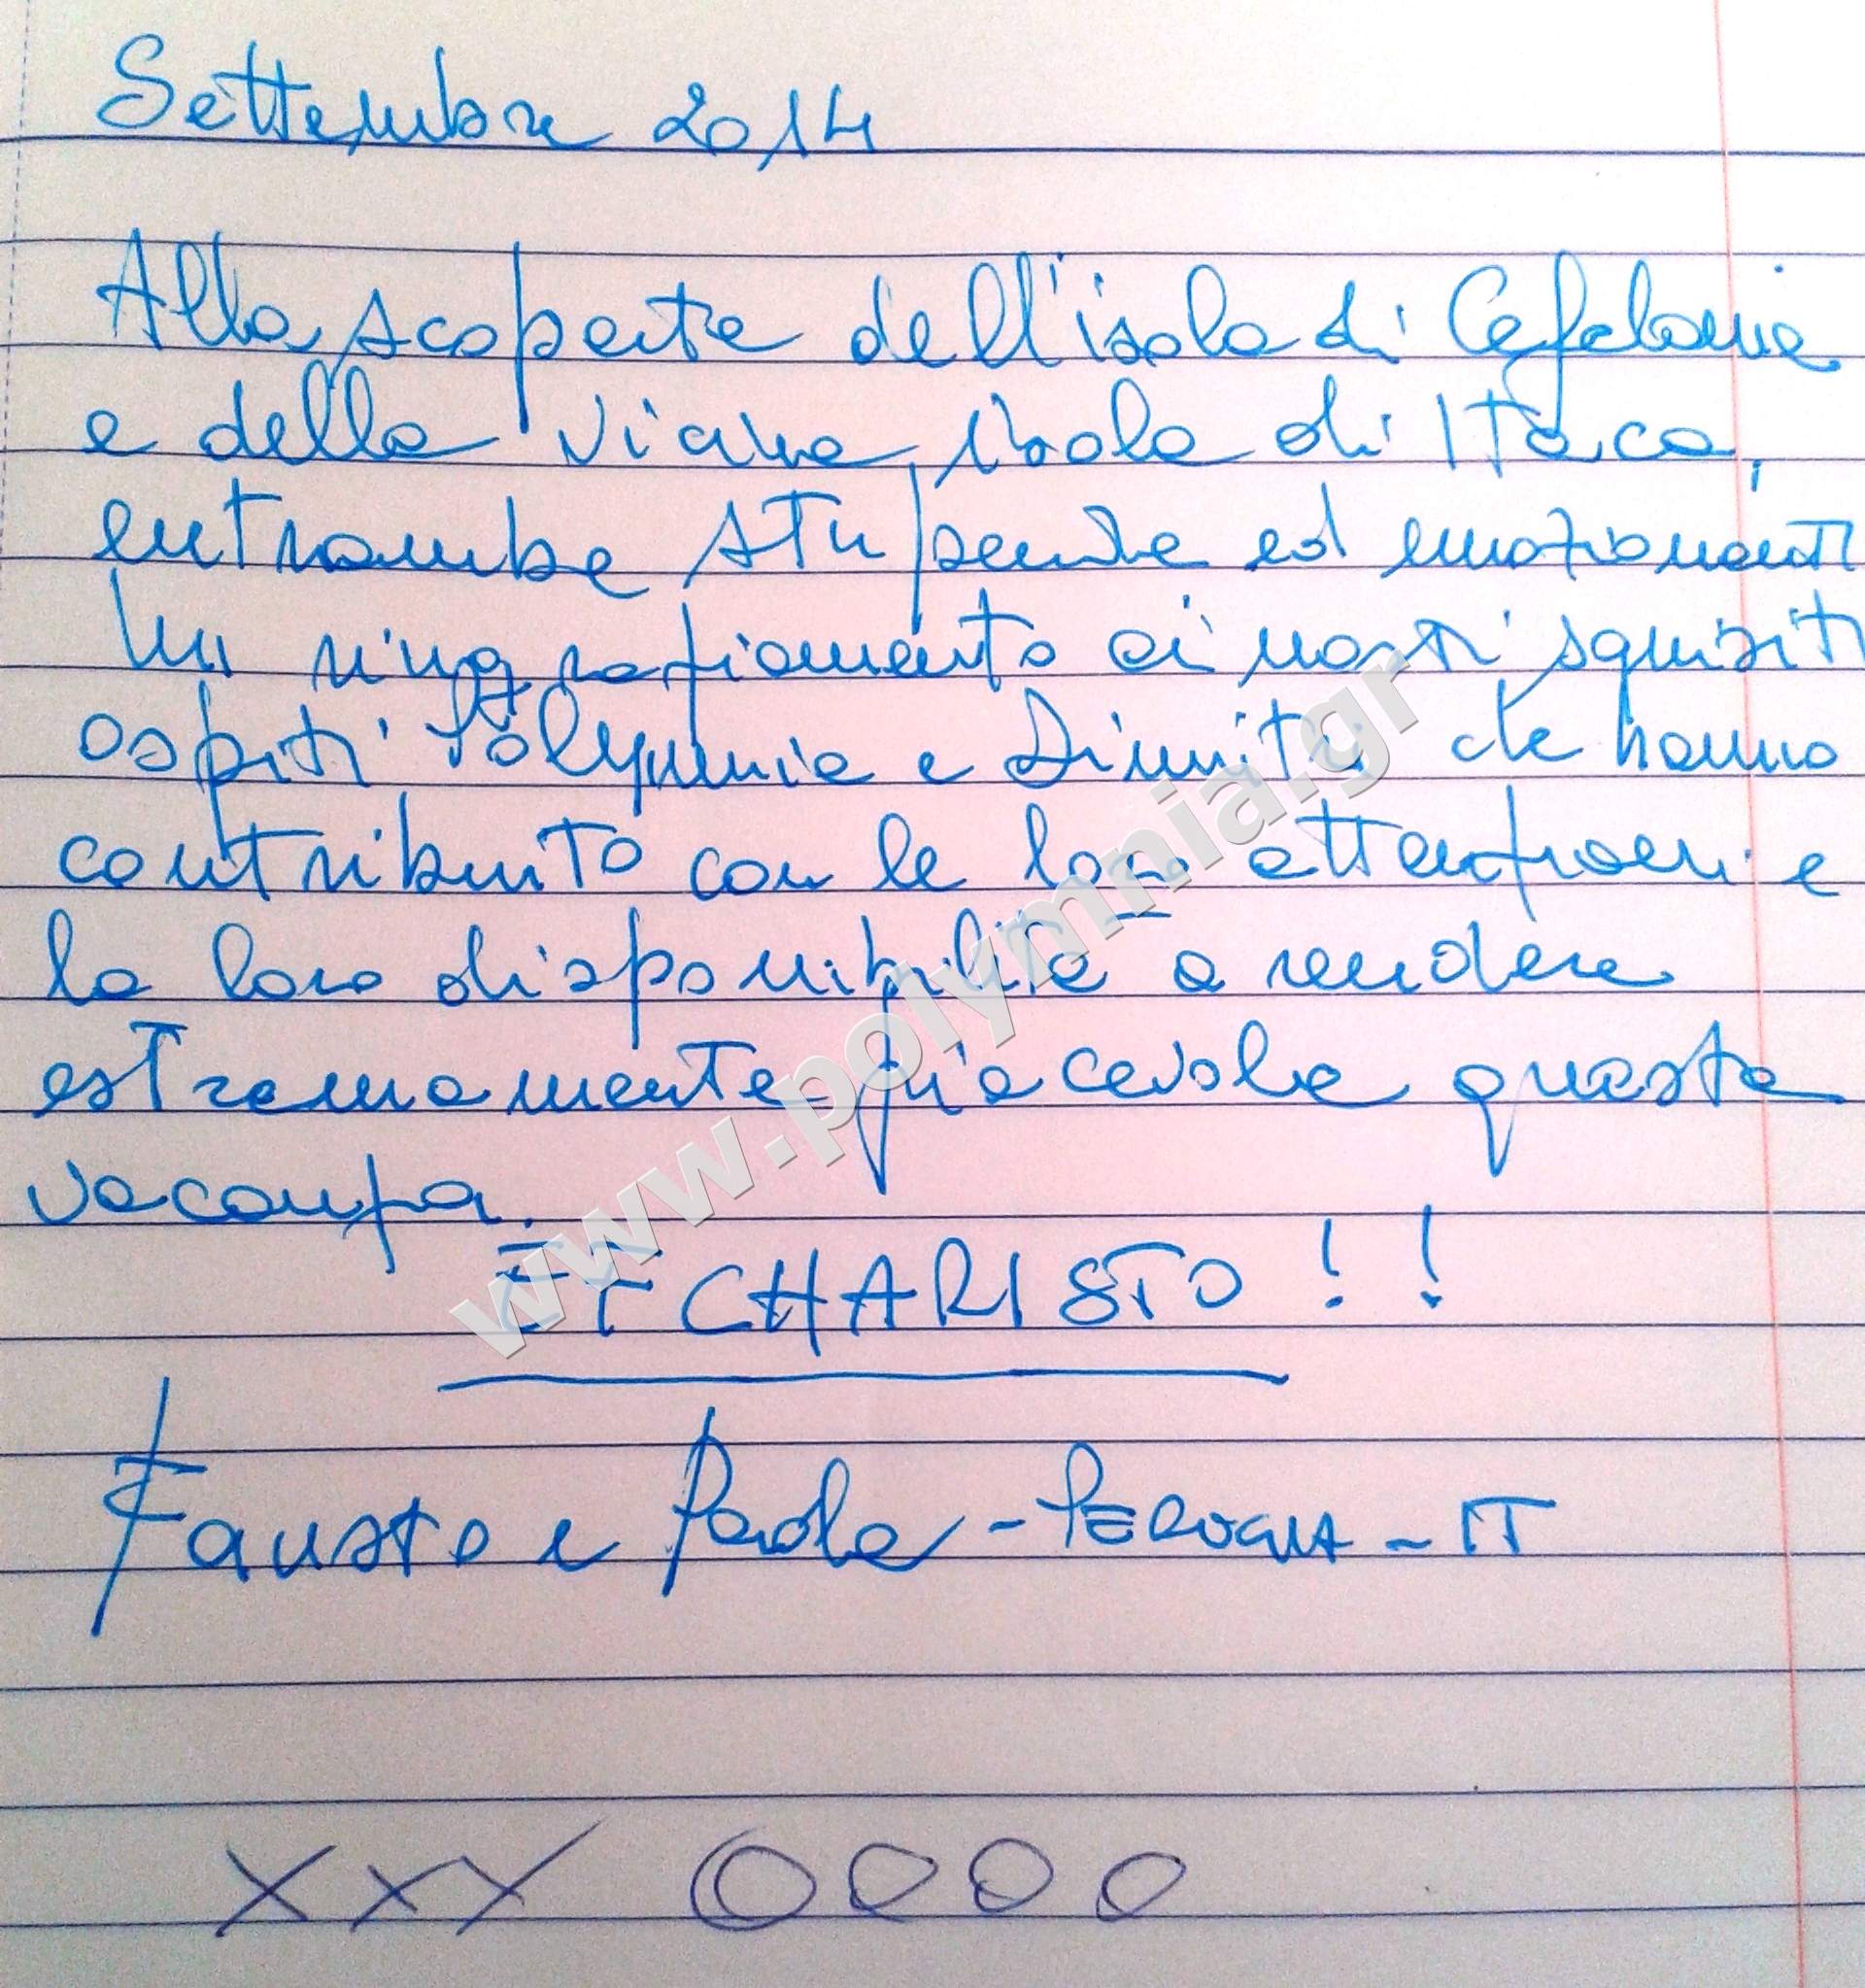 Settembre 2014
Alla scoperta dell'isola di Cefalonia
e della vicina isola di Itaca,
entrambe stupende ed emozionanti
Un ringraziamento ai nostri squisiti
ospiti Polymnia e Dimitri che hanno
contribuito con le loro attenzioni e
la loro disponibilità a rendere
estremamente piacevole questa
vacanza.
EFCHARISTO!!
Fausto e Paola - PERUGIA - IT
XXX OOOO
www.polymnia.gr